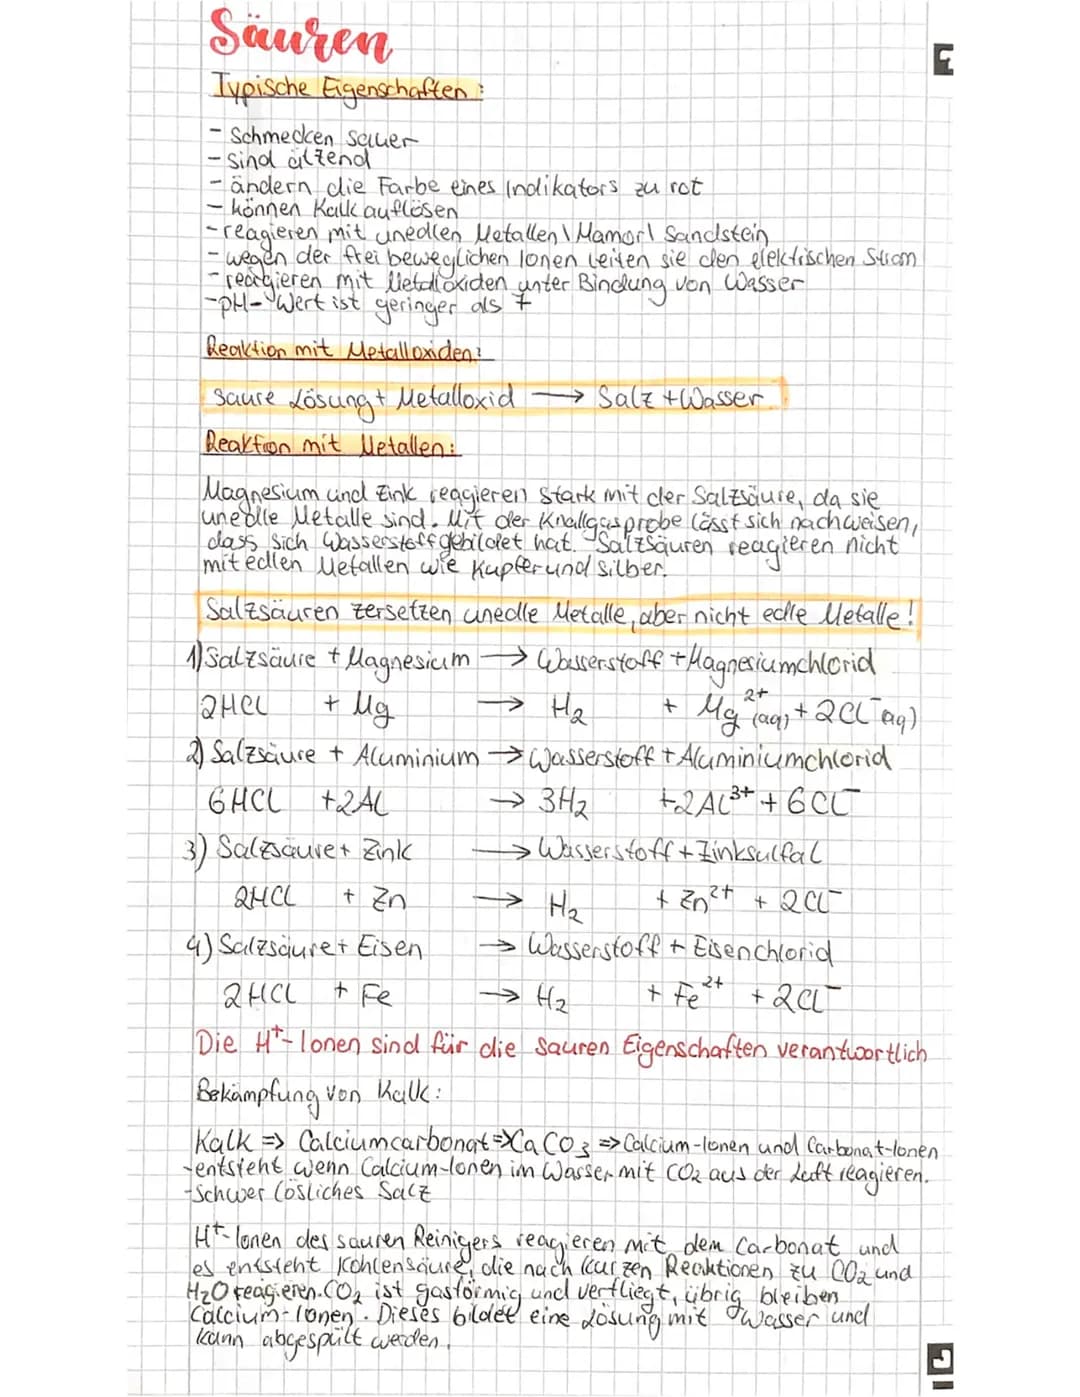 Säuren
Typische Eigenschaften:
- Schmecken sauer
- sind ätzend
- ändern die Farbe eines Indikators zu rot
- können Kalk auflösen
- reagieren mit unedlen Metallen \ Mamor \ Sandstein
- wegen der frei beweglichen Ionen leiten sie den elektrischen Strom
- reagieren mit Metalloxiden unter Bindung von Wasser
- pH-Wert ist geringer als 7
Reaktion mit Metalloxiden:
Saure Lösung + Metalloxid → Salz + Wasser
Reaktion mit Metallen:
Magnesium und Zink reagieren stark mit der Salzsäure, da sie
unedlle Metalle sind. Mit der Knallgasprobe lässt sich nachweisen,
dass sich Wasserstoff gebildet hat. Salzsäuren reagieren nicht
mit edlen Metallen wie Kupfer und Silber.
Salzsäuren zersetzen unedle Metalle, aber nicht edle Metalle!
1) Salzsäure + Magnesium → Wasserstoff + Magnesiumchlorid
2HCl + Mg → H₂ + Mg²⁺(aq) + 2Cl⁻aq)
2) Salzsäure + Aluminium → Wasserstoff + Aluminiumchlorid
6HCl + 2Al → 3H₂ + 2Al³⁺ + 6Cl⁻
3) Salzsäure + Zink → Wasserstoff + Zinksulfat
2HCl + Zn → H₂ + Zn²⁺ + 2Cl⁻
4) Salzsäure + Eisen → Wasserstoff + Eisenchlorid
2HCl + Fe → H₂ + Fe²⁺ + 2Cl⁻
Die H⁺-Ionen sind für die sauren Eigenschaften verantwortlich
Bekämpfung von Kalk:
Kalk => Calciumcarbonat => CaCO₃ => Calcium-Ionen und Carbonat-Ionen
- entsteht wenn Calcium-Ionen im Wasser mit CO₂ aus der Luft reagieren.
- Schwer lösliches Salz
H⁺-Ionen des sauren Reinigers reagieren mit dem Carbonat und
es entsteht Kohlensäure, die nach kurzen Reaktionen zu CO₂ und
H₂O reagieren. CO₂ ist gasförmig und verfliegt, übrig bleiben
Calcium-Ionen. Dieses bildet eine Lösung mit Wasser und
kann abgespült werden.